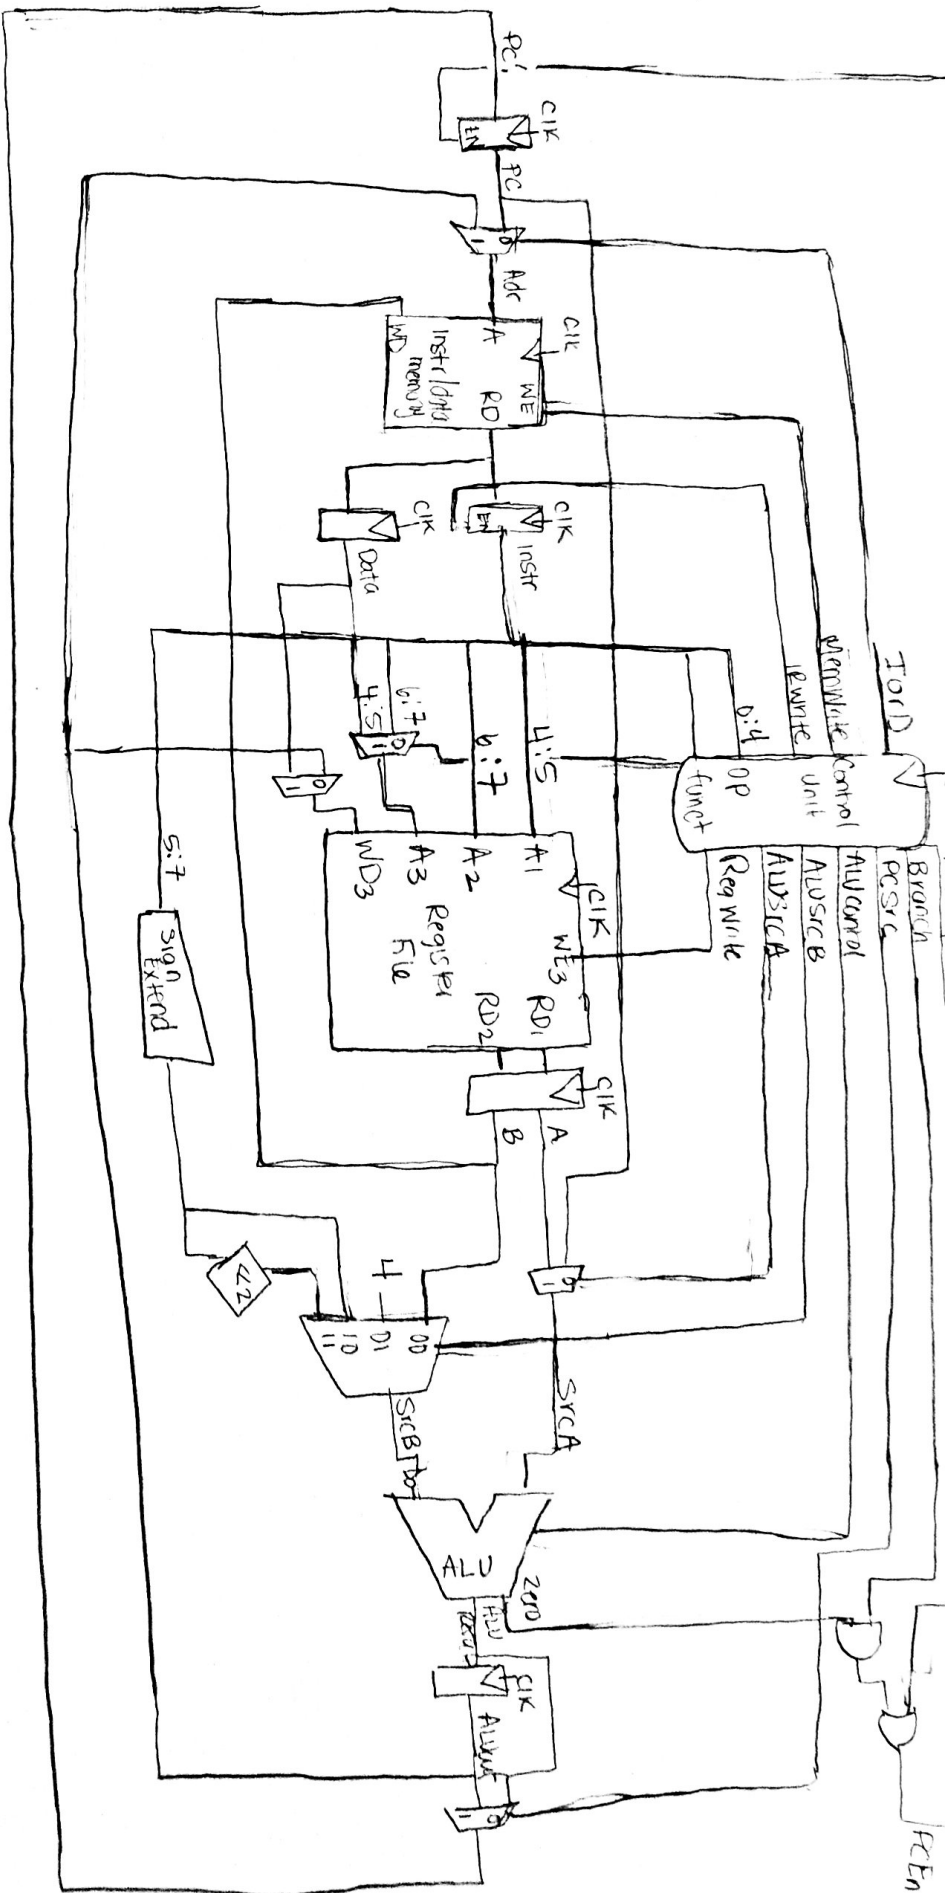 PC'
CLK
EN
PC
0
1
Adr
CLK
A
WE
RD
Instr/data
memory
WD
CLK
EN
Instr
CLK
Data
IorD
MemWrite
IRWrite
0:4
Control
unit
op
funct
Branch
PCSrc
ALUcontrol
ALUSrcB
ALUSrcA
RegWrite
4:5
6:7
6:7
4:5
0
1
0
1
5:7
Sign
Extend
CLK
A1
A2
A3
WD3
WE3
Register
File
RD1
RD2
CLK
A
B
0
1
<2
4
00
01
10
11
SrcA
SrcB
ALU
Zero
ALU
CLK
ALUout
0
1
PCEn